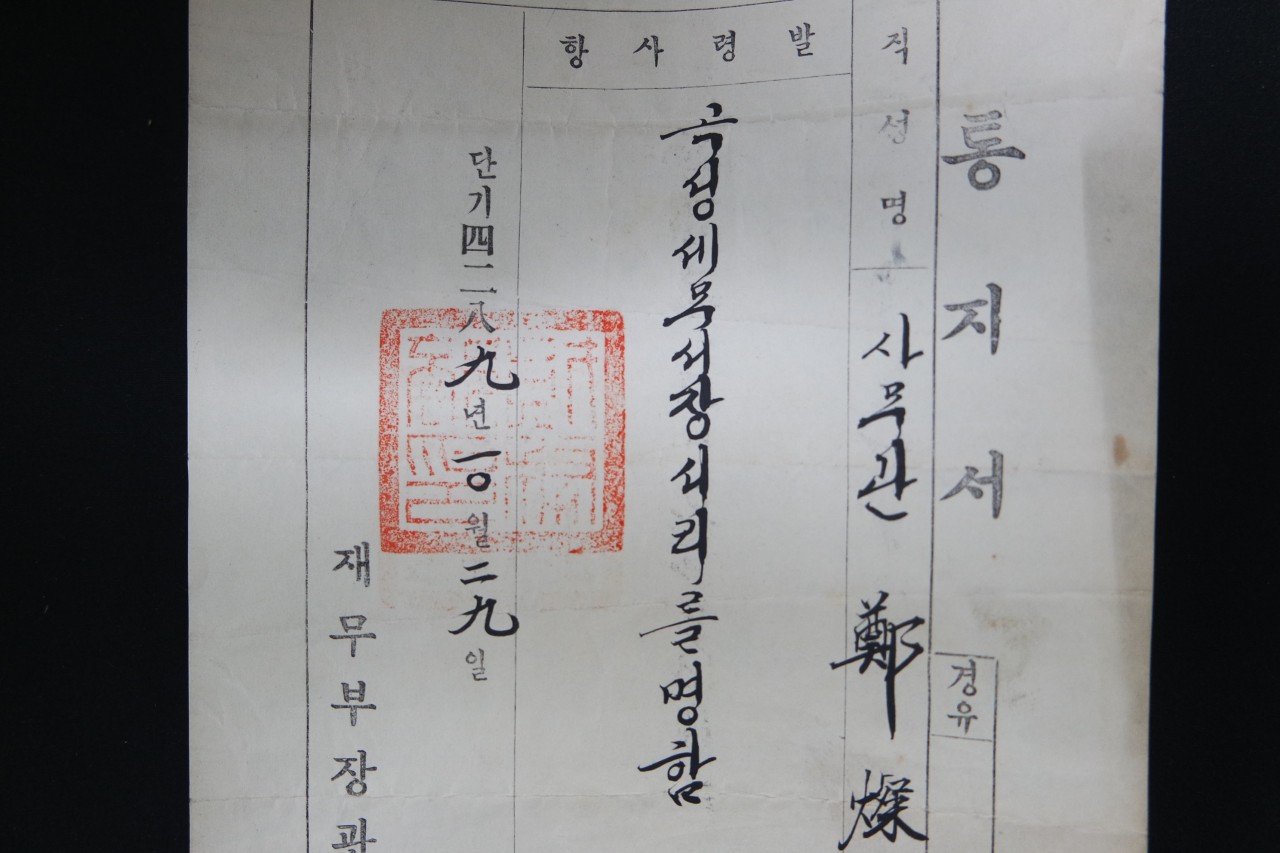 통지서
경유
직성명
사무관 鄭燦
발령사항
곡성세무서장서리를명함
단기四二八九년一〇월二九일
재무부장관